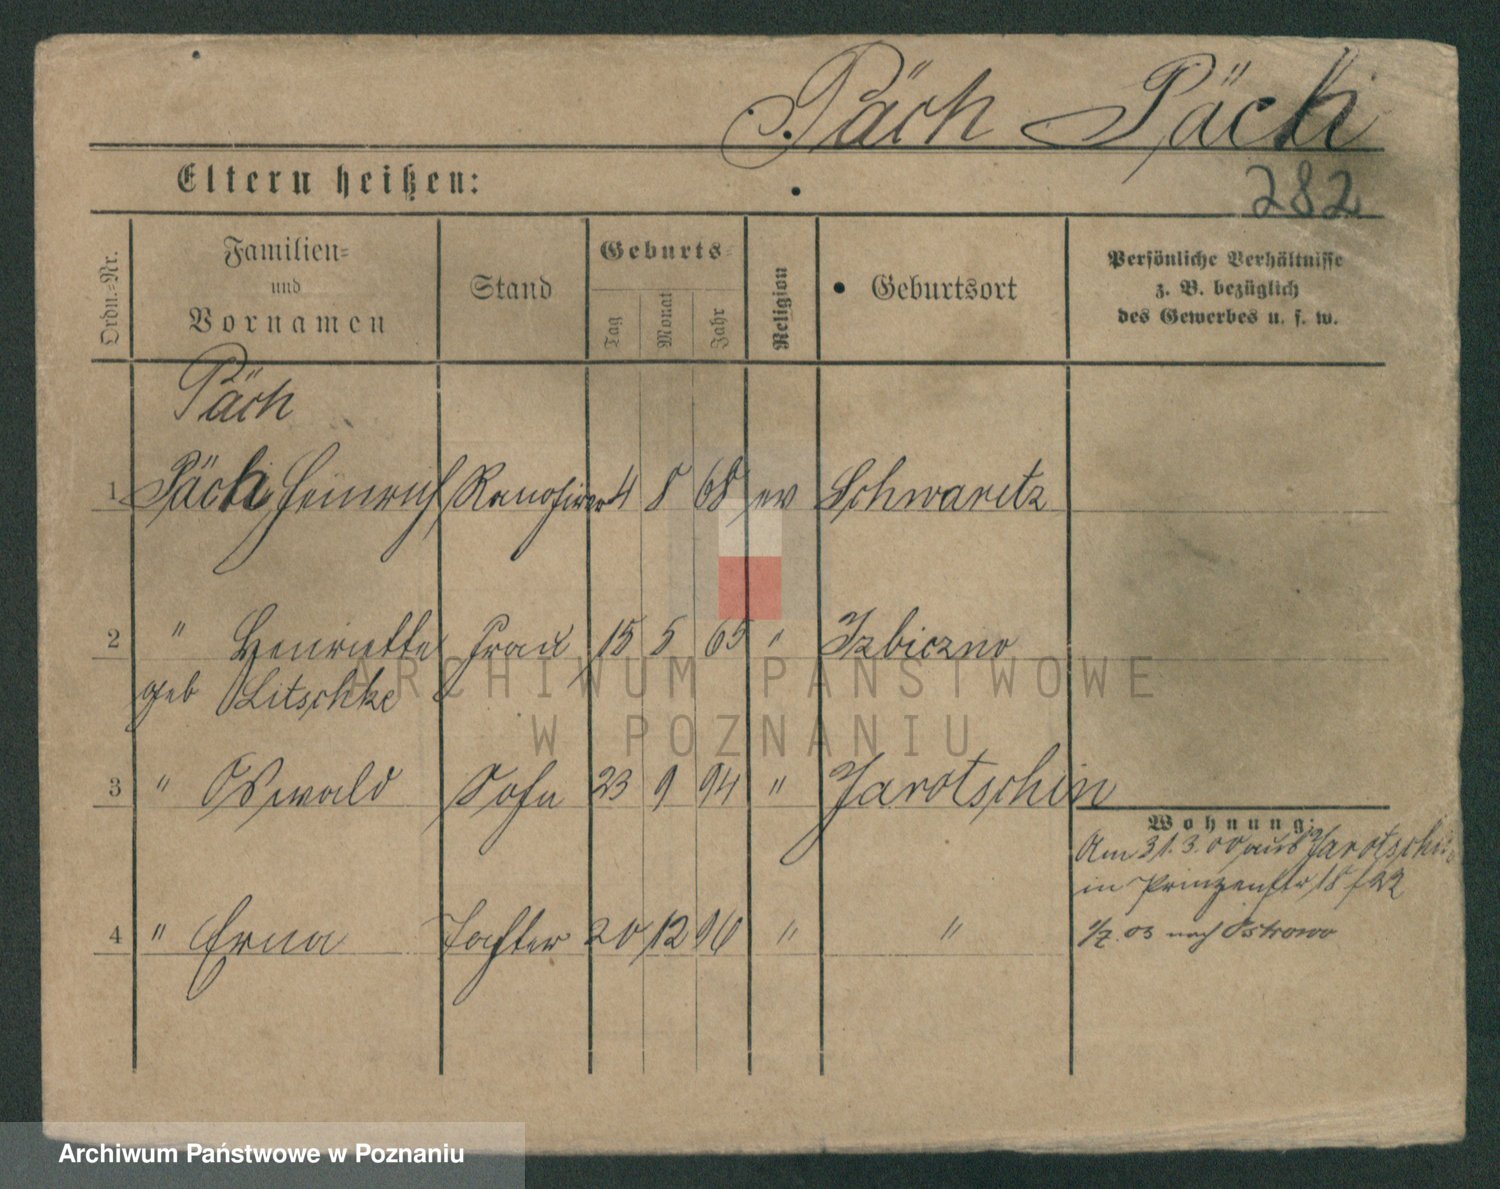 Päch Päch
Eltern heißen:
282
Ordn.-Nr.
Familien- und Vornamen
Stand
Geburts-
Tag
Monat
Jahr
Religion
Geburtsort
Persönliche Verhältnisse
z. B. bezüglich
des Gewerbes u. s. w.
Päch
1 Päch Heinrich 4 8 68 ev Schwaretz
2 " Henriette Frau 15 5 65 " Izbiczno
geb Litschke
3 " Oswald Sohn 23 9 94 " Jarotschin
Wohnung:
Am 31.3.00 aus Jarotschin
in Prinzenstr 18 f 22
4 " Erna Tochter 20 12 96 " "
03 nach Ostrowo
ARCHIWUM PAŃSTWOWE
W POZNANIU
Archiwum Państwowe w Poznaniu